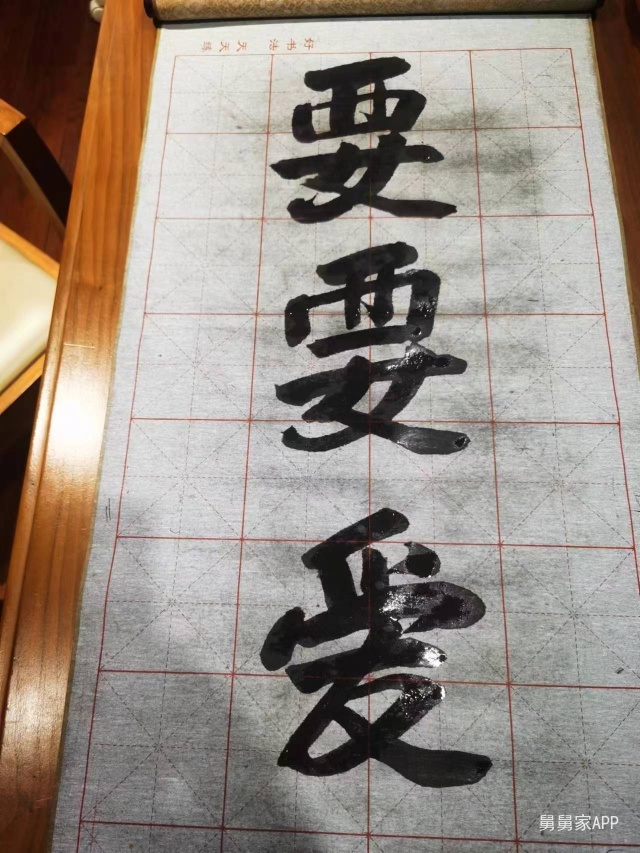 好书法 天天练
要
要
爱
舅舅家APP